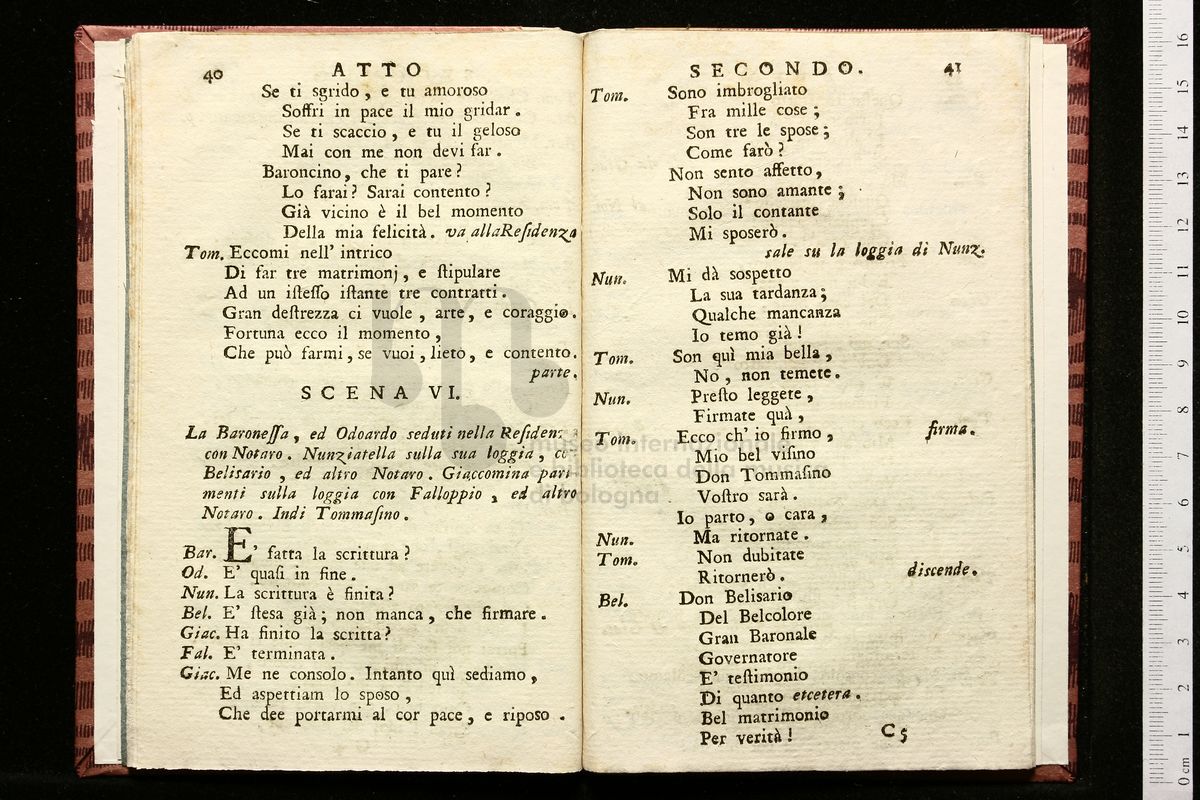 40 ATTO
Se ti sgrido, e tu amoroso
Soffri in pace il mio gridar.
Se ti scaccio, e tu il geloso
Mai con me non devi far.
Baroncino, che ti pare?
Lo farai? Sarai contento?
Già vicino è il bel momento
Della mia felicità. va alla Reſidenza
Tom. Eccomi nell' intrico
Di far tre matrimonj, e ſtipulare
Ad un iſteſſo iſtante tre contratti.
Gran deſtrezza ci vuole, arte, e coraggio.
Fortuna ecco il momento,
Che può farmi, se vuoi, lieto, e contento.
parte.
SCENA VI.
La Baroneſſa, ed Odoardo seduti nella Reſidenza
con Notaro. Nunziatella sulla sua loggia, con
Belisario, ed altro Notaro. Giaccomina pari-
menti sulla loggia con Falloppio, ed altro
Notaro. Indi Tommaſino.
Bar. E' fatta la scrittura?
Od. E' quaſi in fine.
Nun. La scrittura è finita?
Bel. E' ſtesa già; non manca, che firmare.
Giac. Ha finito la scritta?
Fal. E' terminata.
Giac. Me ne consolo. Intanto quì sediamo,
Ed aspettiam lo sposo,
Che dee portarmi al cor pace, e riposo.
SECONDO. 41
Tom. Sono imbrogliato
Fra mille cose;
Son tre le spose;
Come farò?
Non sento affetto,
Non sono amante;
Solo il contante
Mi sposerò.
sale su la loggia di Nunz.
Nun. Mi dà sospetto
La sua tardanza;
Qualche mancanza
Io temo già!
Tom. Son quì mia bella,
No, non temete.
Nun. Preſto leggete,
Firmate quà,
Tom. Ecco ch' io firmo, firma.
Mio bel viſino
Don Tommaſino
Voſtro sarà.
Io parto, o cara,
Nun. Ma ritornate.
Tom. Non dubitate
Ritornerò. discende.
Bel. Don Belisario
Del Belcolore
Gran Baronale
Governatore
E' teſtimonio
Di quanto etcetera.
Bel matrimonio
Per verità!
C 5
museo internazionale
e biblioteca della musica
di bologna
0 cm 1 2 3 4 5 6 7 8 9 10 11 12 13 14 15 16